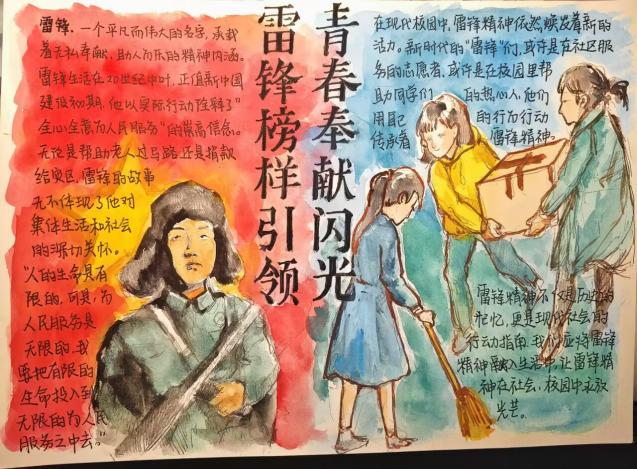 雷锋，一个平凡而伟大的名字，承载
着无私奉献、助人而乐的精神内涵。
雷锋生活在20世纪中叶，正值新中国
建设初期，他以实际行动诠释了"
全心全意为人民服务"的崇高信念。
无论是帮助老人过马路还是捐款
给灾区，雷锋的故事
无不体现了他对
集体生活和社会
的深切关怀。
"人的生命是有
限的，可是，为
人民服务是
无限的，我
要把有限的
生命投入到
无限的为人民
服务之中去。"
雷锋榜样引领
青春奉献闪光
在现代校园中，雷锋精神依然焕发着新的
活力。新时代的"雷锋"们，或许是在社区服
务的志愿者，或许是在校园里帮
助同学们的热心人，他们
用自己的行为行动
传承着雷锋精神。
雷锋精神不仅是历史的
忙忆，更是现代社会的
行动指南。我们应将雷锋
精神融入生活中，让雷锋精
神在社会，校园中永放
光芒。